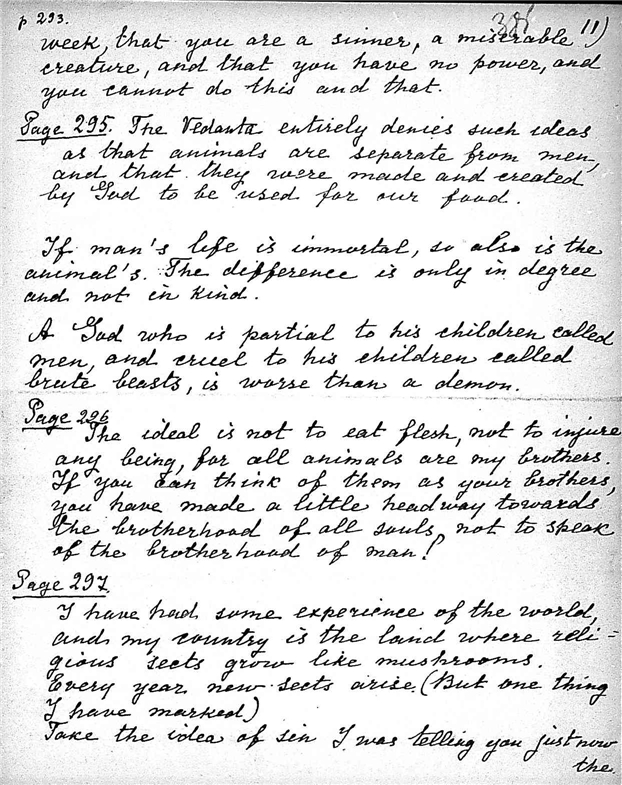 p 293.
11)
week, that you are a sinner, a miserable
creature, and that you have no power, and
you cannot do this and that.
Page 295. The Vedanta entirely denies such ideas
as that animals are separate from men,
and that they were made and created
by God to be used for our food.
If man's life is immortal, so also is the
animal's. The difference is only in degree
and not in kind.
A God who is partial to his children called
men, and cruel to his children called
brute beasts, is worse than a demon.
Page 296
The ideal is not to eat flesh, not to injure
any being, for all animals are my brothers.
If you can think of them as your brothers,
you have made a little headway towards
the brotherhood of all souls, not to speak
of the brotherhood of man!
Page 297
I have had some experience of the world,
and my country is the land where reli=
gious sects grow like mushrooms.
Every year new sects arise. (But one thing
I have marked)
Take the idea of sin I was telling you just now
the.